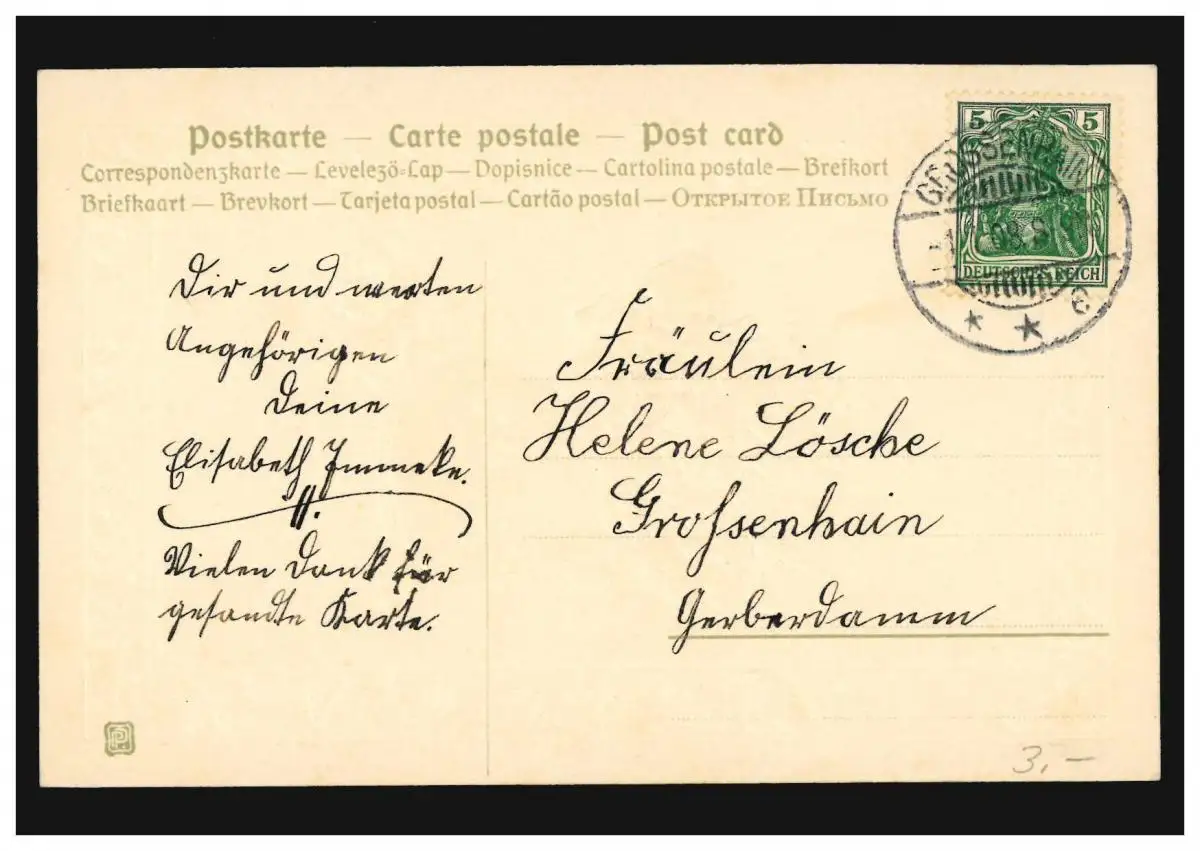 Postkarte — Carte postale — Post card
Correspondenzkarte — Levelezö-Lap — Dopisnice — Cartolina postale — Brefkort
Briefkaart — Brevkort — Tarjeta postal — Cartão postal — Открытое Письмо
5 5
DEUTSCHES REICH
GROSSENHAIN
08.9
* * e
Dir und werten
Angehörigen
Deine
Elisabeth Immeke.
Vielen Dank für
gesandte Karte.
Fräulein
Helene Lösche
Grossenhain
Gerberdamm
3,–